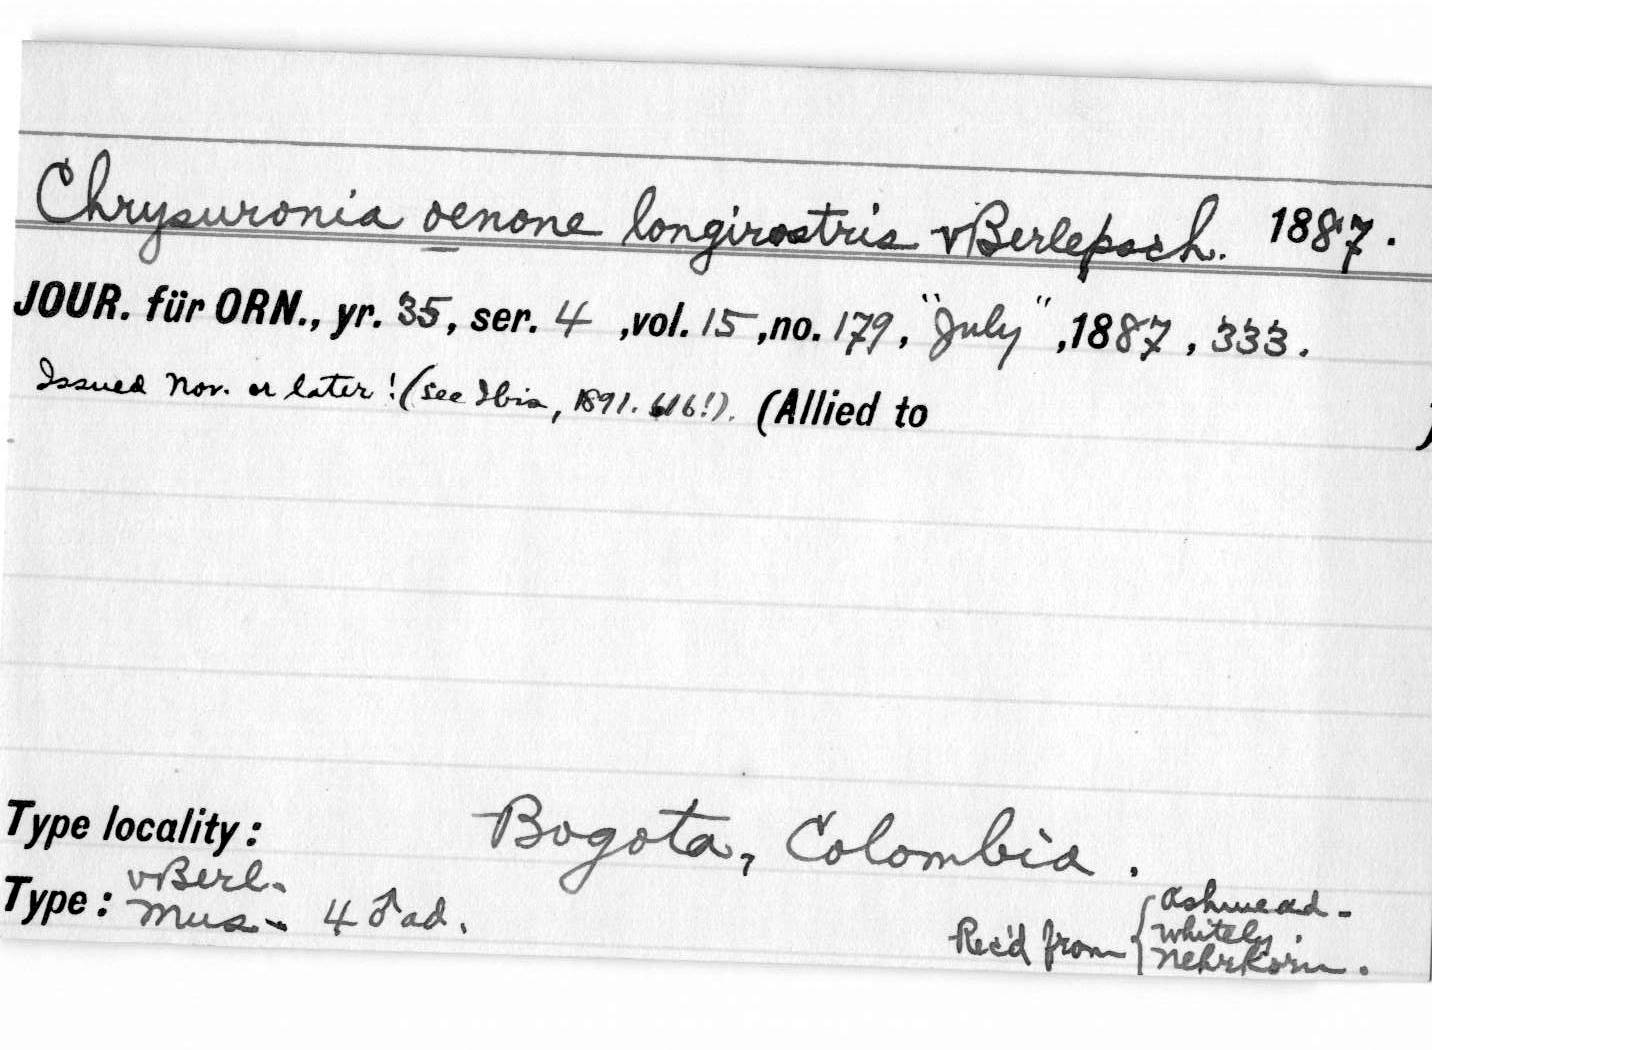 Chrysuronia oenone longirostris vBerlepsch. 1887.
JOUR. für ORN., yr. 35, ser. 4 ,vol. 15 ,no. 179, "July" ,1887 , 333.
Issued Nov. or later! (see Ibis, 1891. 616!). (Allied to )
Type locality: Bogota, Colombia.
vBerl.
Type: Mus- 4 ♂ ad.
Rec'd from { Ashmead-
Whitely.
Nehrkorn.